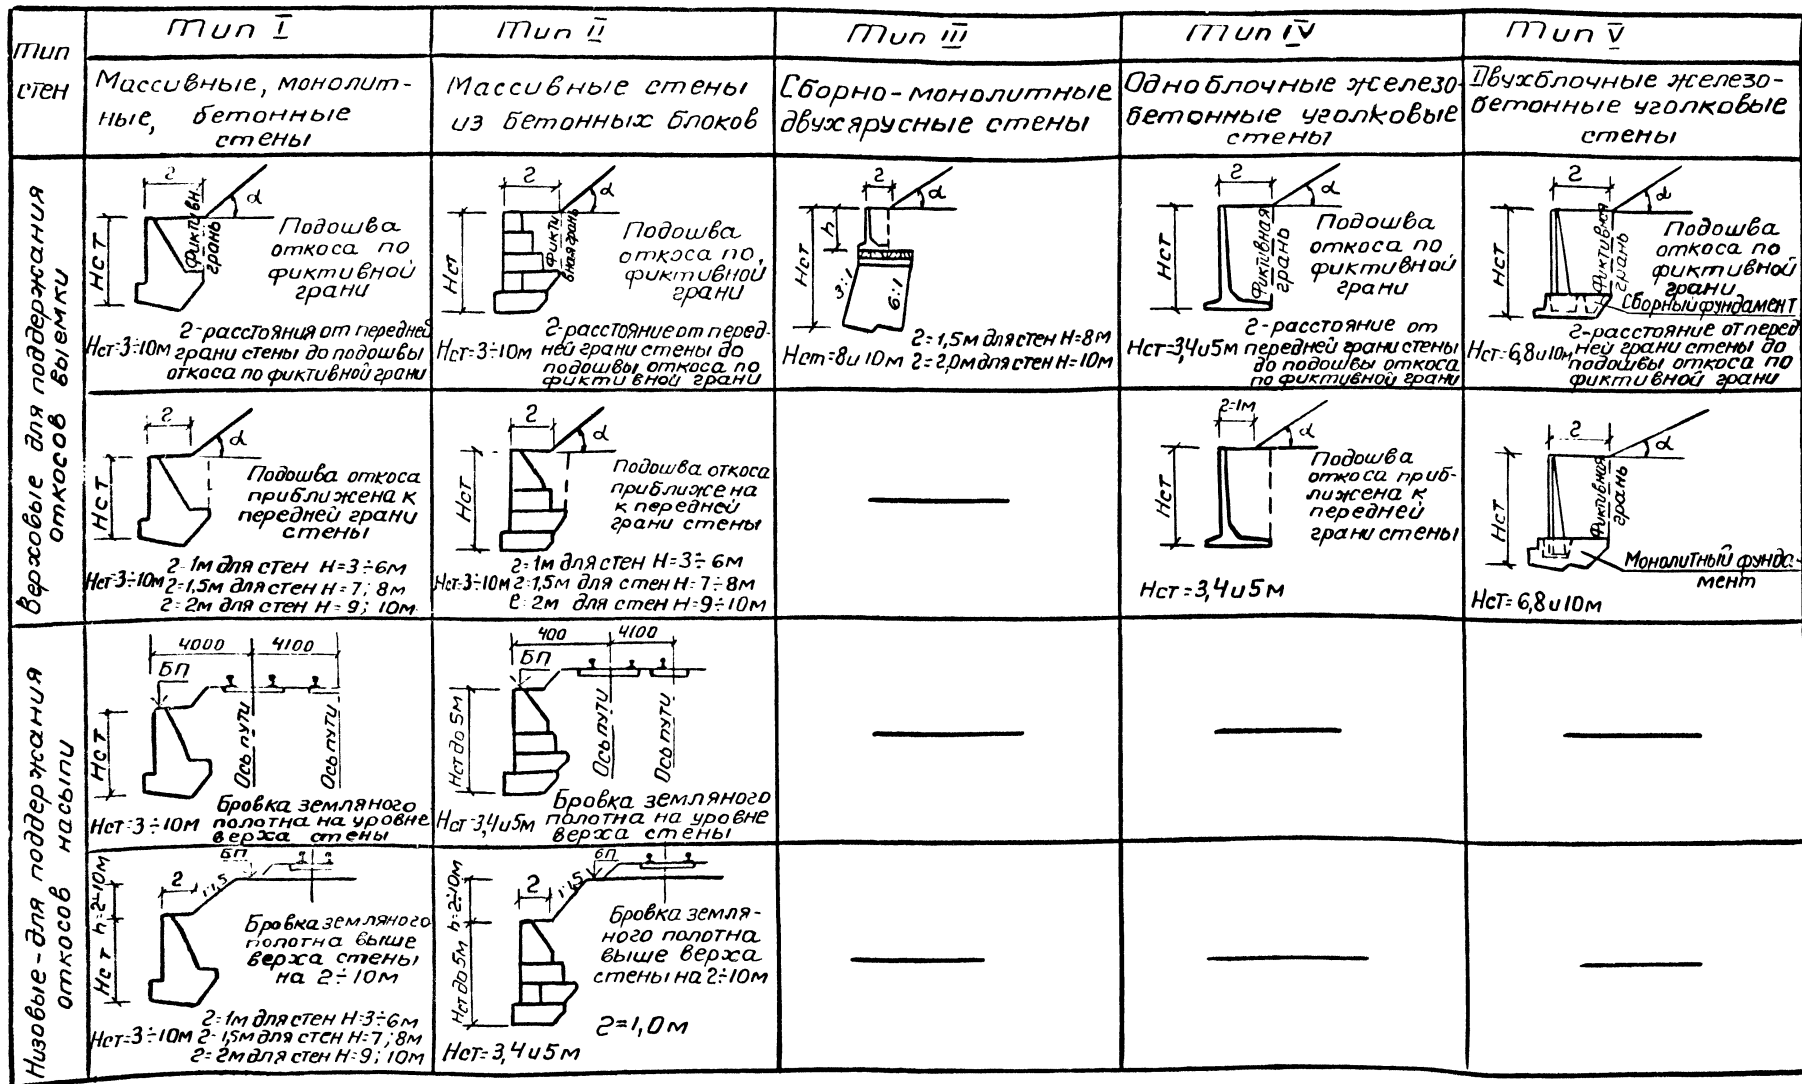 Тип
стен
Тип I
Тип II
Тип III
Тип IV
Тип V
Массивные, монолит-
ные, бетонные
стены
Массивные стены
из бетонных блоков
Сборно-монолитные
двухярусные стены
Одноблочные железо-
бетонные уголковые
стены
Двухблочные железо-
бетонные уголковые
стены
Верховые для поддержания
откосов выемки
г
α
Нст
Фиктивн.
грань
Подошва
откоса по
фиктивной
грани
Нст=3÷10м
г-расстояния от передней
грани стены до подошвы
откоса по фиктивной грани
г
α
Нст
Фикти
вная грань
Подошва
откоса по,
фиктивной
грани
Нст=3÷10м
г-расстояние от перед-
ней грани стены до
подошвы откоса по
фиктивной грани
г
α
Нст
h
3:1
6:1
Нст=8и10м
г=1,5м для стен Н=8м
г=2,0м для стен Н=10м
г
α
Нст
Фиктивная
грань
Подошва
откоса по
фиктивной
грани
Нст=3,4и5м
г-расстояние от
передней грани стены
до подошвы откоса
по фиктивной грани
г
α
Нст
Фиктивная
грань
Подошва
откоса по
фиктивной
грани
Сборный фундамент
Нст=6,8и10м
г-расстояние от перед
ней грани стены до
подошвы откоса по
фиктивной грани
г
α
Нст
Подошва откоса
приближена к
передней грани
стены
Нст=3÷10м
г=1м для стен Н=3÷6м
г=1,5м для стен Н=7; 8м
г=2м для стен Н=9; 10м
г
α
Нст
Подошва откоса
приближена
к передней
грани стены
Нст=3÷10м
г=1м для стен Н=3÷6м
г=1,5м для стен Н=7÷8м
г=2м для стен Н=9÷10м
г=1м
α
Нст
Подошва
откоса приб-
лижена к
передней
грани стены
Нст=3,4и5м
г
α
Нст
Фиктивная
грань
Монолитный фунда-
мент
Нст=6,8и10м
Низовые-для поддержания
откосов насыпи
4000
4100
БП
Нст
Ось пути
Ось пути
Нст=3÷10м
Бровка земляного
полотна на уровне
верха стены
400
4100
БП
Нст до 5м
Ось пути
Ось пути
Нст=3,4и5м
Бровка земляного
полотна на уровне
верха стены
БП
г
1:1,5
h=2÷10м
Нст
Бровка земляного
полотна выше
верха стены
на 2÷10м
Нст=3÷10м
г=1м для стен Н=3÷6м
г=1,5м для стен Н=7; 8м
г=2м для стен Н=9; 10м
БП
г
1:1,5
h=2÷10м
Нст до 5м
Бровка земля-
ного полотна
выше верха
стены на 2÷10м
г=1,0м
Нст=3,4и5м